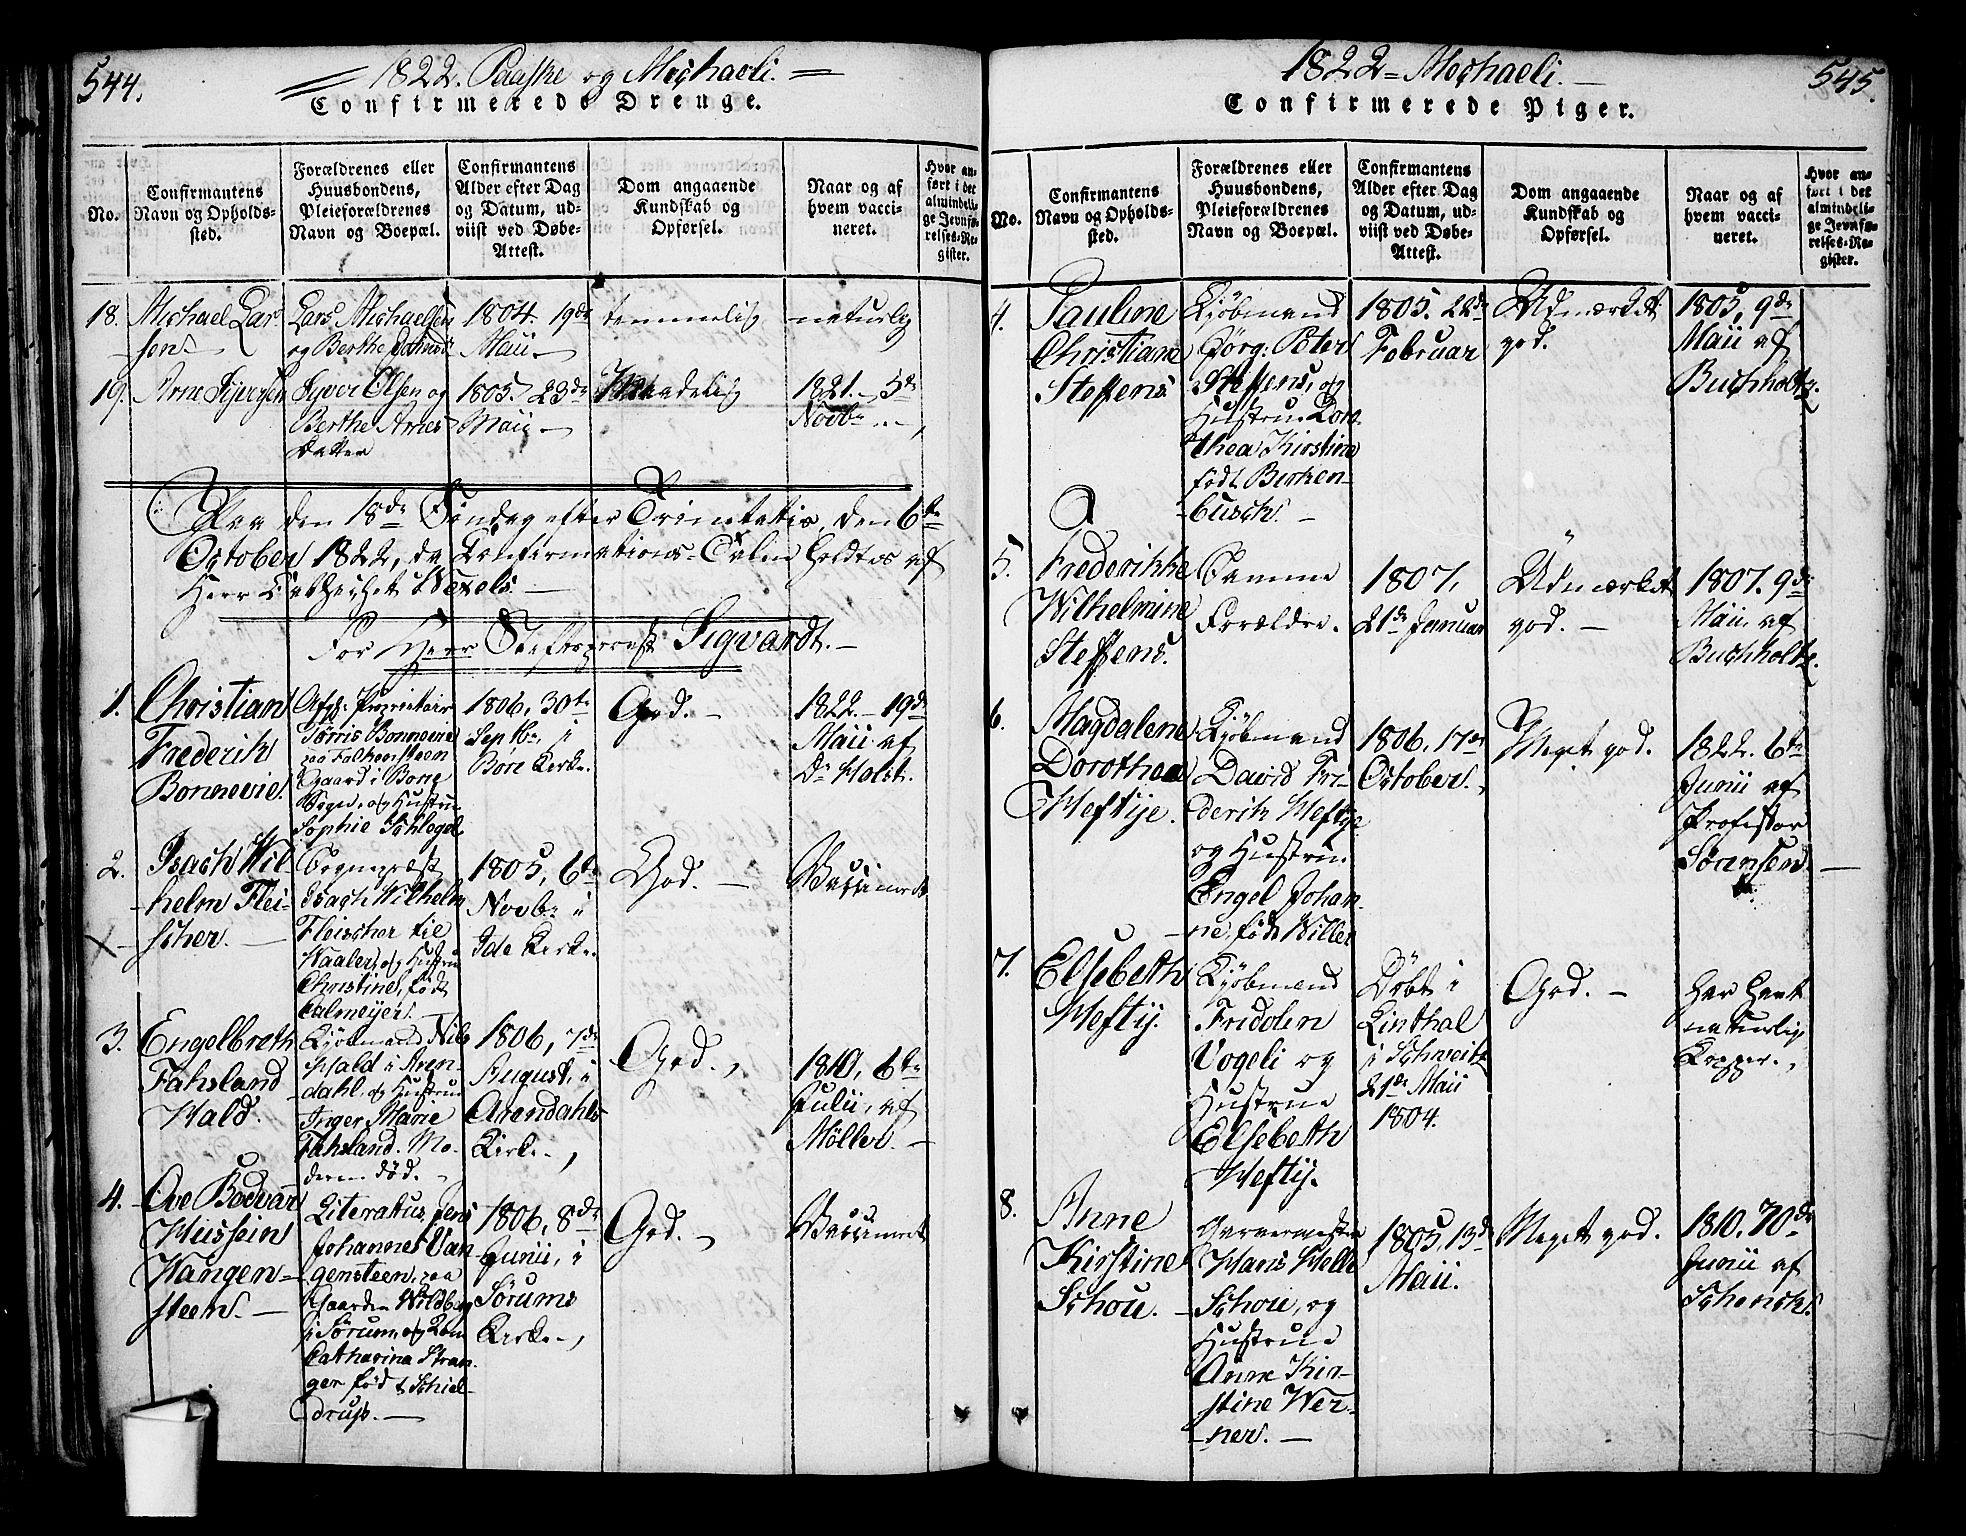 544.
1822. Paaske og Michaeli.
Confirmerede Drenge.
No.
Confirmantens
Navn og Opholds-
sted.
Forældrenes eller
Huusbondens,
Pleieforældrenes
Navn og Boepæl.
Confirmantens
Alder efter Dag
og Datum, ud-
viist ved Døbe-
Attest.
Dom angaaende
Kundskab og
Opførsel.
Naar og af
hvem vacci-
neret.
Hvor an-
ført i det
almindeli-
ge Jevnfø-
relses-Re-
gister.
18.
Michael Lar-
sen.
Lars Michaelsen
og Berthe
1804. 19de
Maii
temmelig
naturlig
19.
Arne Syversen
Syver Olsen og
Berthe Arnes
Datter
1805. 23de
Maii
maadelig
1821. 5te
Novbr.
Paa den 18de Søndag efter Trinitatis, den 6te
October 1822, da Confirmations-Talen holdtes af
Herr Catechet Wexels.
For Herr Stiftsprovst Sigvardt.
1.
Christian
Frederik
Bonnevie.
Afg: Proprietair
Tørris Bonnevie
paa Falkensteen
Gaard i Borre
Sogn, og Hustrue
Sophie Schlegel
1806, 30te
Septbr. i
Børe Kirke.
God.
1822. 19de
Maii af
Dr Holst.
2.
Isach Wil-
helm Flei-
scher.
Sognepræst
Isach Wilhelm
Fleischer til
Waaler, og Hustrue
Christine, født
Calmeyer.
1805, 6te
Novbr. i
Ide Kirke.
God.
Vaccineret
3.
Engelbreth
Fahsland
Hald.
Kjøbmand Nils
Hald i Aren-
dahl, og Hustrue
Inger Marie
Fahsland. Mo-
deren død.
1806, 7de
August, i
Arendahls
Kirke.
God.
1810, 6te
Julii, af
Möller
4.
Ove Bodvar
Hussein
Wangen-
steen.
Literatus Jens
Johannes Van-
gensteen, paa
Gaarden Wildberg
i Sørum, og Kone
Catharina Stran-
ger født Schiel-
drup.
1806, 8de
Junii, i
Sørums
Kirke.
God.
Vaccineret
1822 Michaeli.
545.
Confirmerede Piger.
No.
Confirmantens
Navn og Opholds-
sted.
Forældrenes eller
Huusbondens,
Pleieforældrenes
Navn og Boepæl.
Confirmantens
Alder efter Dag
og Datum, ud-
viist ved Døbe-
Attest.
Dom angaaende
Kundskab og
Opførsel.
Naar og af
hvem vacci-
neret.
Hvor an-
ført i det
almindeli-
ge Jevnfø-
relses-Re-
gister.
4.
Pauline
Christiane
Steffens
Kjöbmand
Jörg: Peter
Steffens, og
Hustrue Doro-
thea Kirstine
født Berken-
busch.
1805. 22de
Februar
Udmærket
god.
1805, 9de
Maii af
Buchholtz.
5.
Frederikke
Wilhelmine
Steffens.
Samme
Forældre.
1807,
21de Januar
Udmærket
god.
1807. 9de
Maii, af
Buchholtz.
6.
Magdalene
Dorothea
Heftije.
Kjöbmand
David Fri-
derik Heftije
og Hustrue
Engel Johan-
ne, født Willer
1806, 17de
October.
Meget god.
1822. 6te
Junii af
Professor
Sørensen.
7.
Elsebeth
Heftij.
Kjöbmand
Fridolin
Vogeli og
Hustrue
Elsebeth
Heftij.
Döbt i
Linthal
i Schweitz
21de Maii
1804.
God.
Har havt
naturlige
Kopper.
8.
Anne
Kirstine
Schou.
Garvermester
Hans Helle
Schou, og
Hustrue
Anne Kir-
stine Wer-
ner.
1805, 13de
Maii.
Meget god.
1810. 70de
Junii af
Schenck.